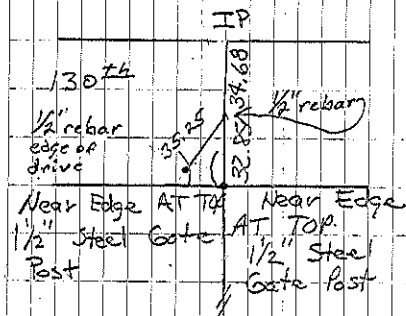 IP
130 ±4
34.68
1/2" rebar
1/2" rebar
edge of
drive
35.25
32.85
Near Edge AT TOP
1 1/2" Steel Gate
Post
Near Edge
AT TOP.
1 1/2" Steel
Gate Post